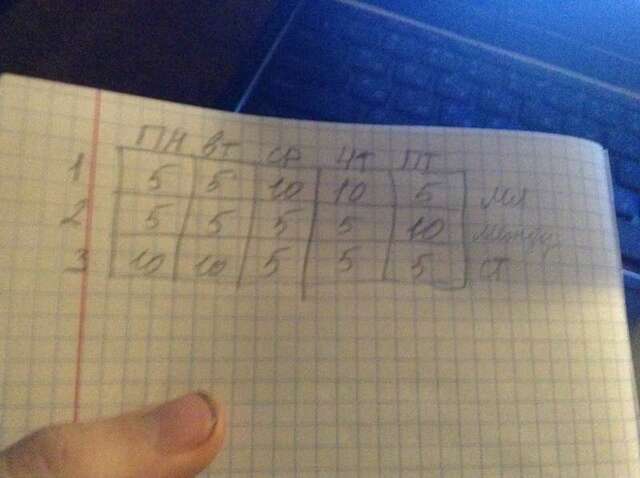 ПН ВТ СР ЧТ ПТ
1 5 5 10 10 5 мл
2 5 5 5 5 10
3 10 10 5 5 5 ст